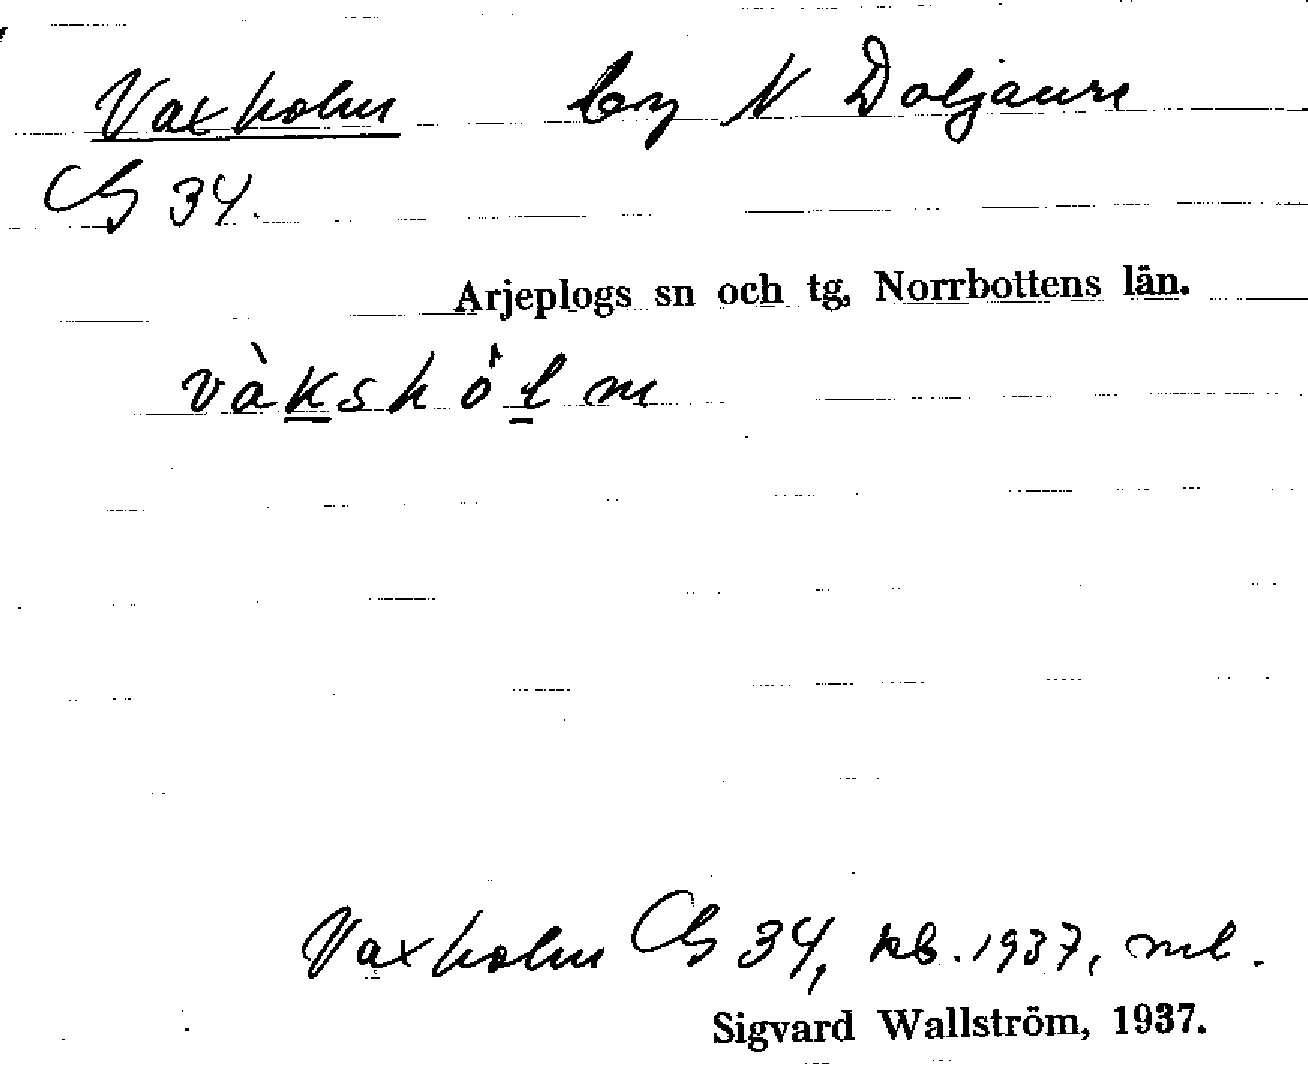 Vaxholm by N Doljaure
CS 34.
Arjeplogs sn och tg, Norrbottens län.
vàkshòlm
Vaxholm CS 34, kb. 1937, ml.
Sigvard Wallström, 1937.